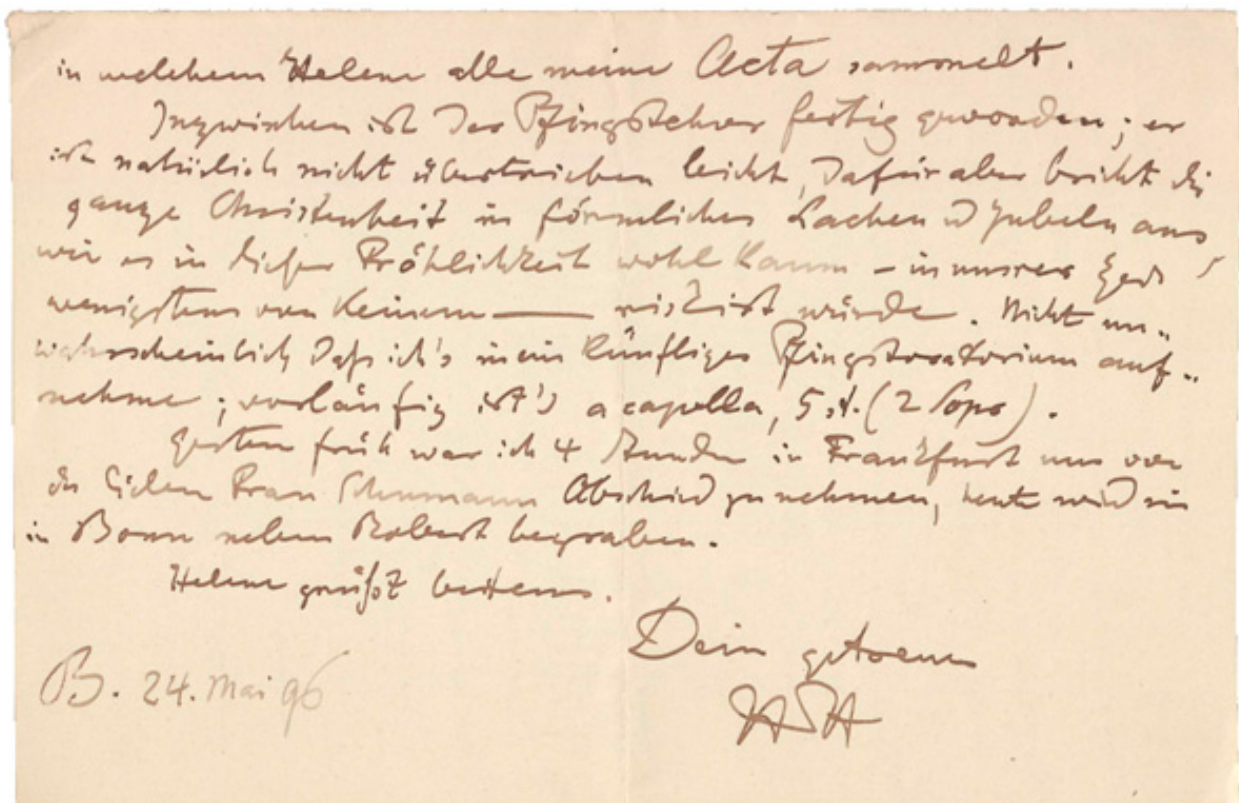 in welchem Helene alle meine Acta sammelt.
Inzwischen ist der Pfingstchor fertig geworden; er
ist natürlich nicht übertrieben leicht, dafür aber bricht die
ganze Christenheit in förmliches Lachen u Jubeln aus,
wie es in dieser Fröhlichkeit wohl kaum – in unsrer Zeit
wenigstens von Keinem — riskirt würde. Nicht un„
wahrscheinlich daß ich's in ein künftiges Pfingstoratorium auf„
nehme; vorläufig ist's a capella, 5 st. (2 Sopr).
Gestern früh war ich 4 Stunden in Frankfurt um von
der lieben Frau Schumann Abschied zu nehmen, heute wird sie
in Bonn neben Robert begraben.
Helene grüßt bestens.
Dein getreuer
HvH
B. 24. Mai 96